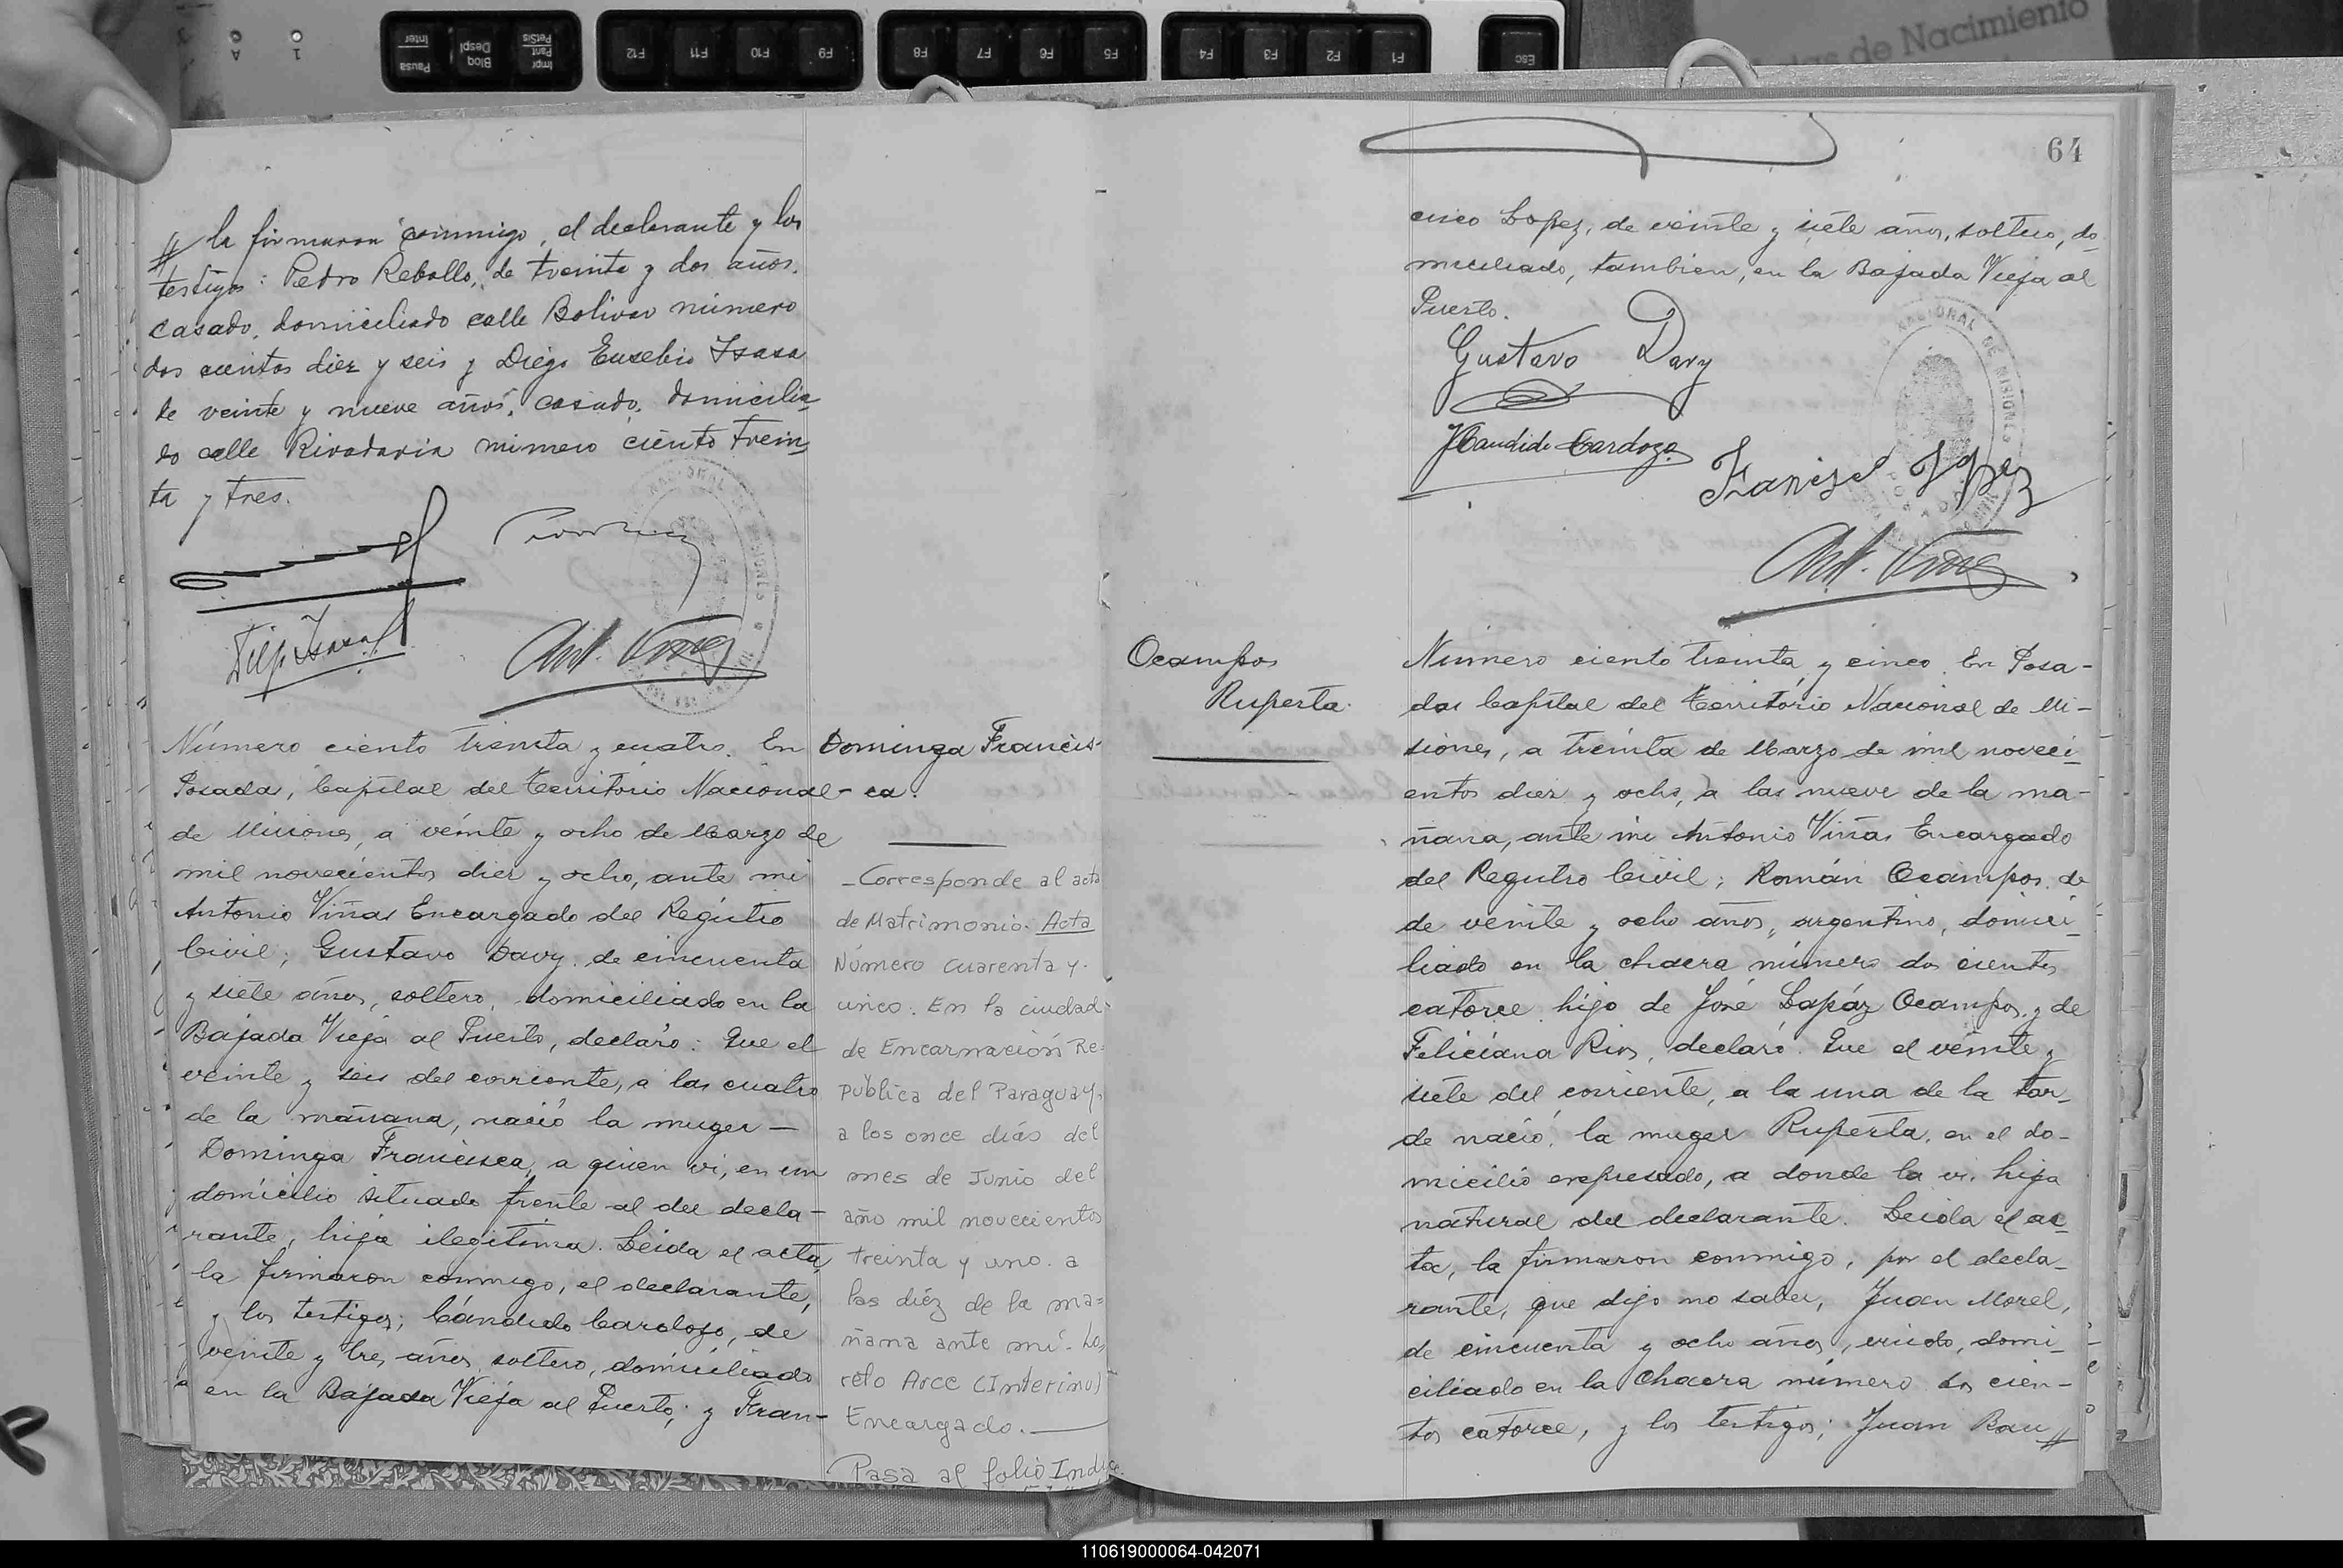 Inter
Pausa
Despl
Bloq
PetSis
Pant
Impr
F12
F11
F10
F9
F8
F7
F6
F5
F4
F3
F2
F1
Esc
A
1
de Nacimiento
la firmaron conmigo, el declarante y los
testigos: Pedro Rebollo, de treinta y dos años,
casado, domiciliado calle Bolivar número
dos cientos diez y seis y Diego Eusebio Isasa
de veinte y nueve años, casado, domicilia
do calle Rivadavia número ciento trein
ta y tres.
Ant. Viñas
Número ciento treinta y cuatro. En
Posadas, Capital del Territorio Nacional
de Misiones, a veinte y ocho de Marzo de
mil novecientos diez y ocho, ante mi
Antonio Viñas Encargado del Registro
Civil; Gustavo Davy. de cincuenta
y siete años, soltero, domiciliado en la
Bajada Vieja al Puerto, declaró: Que el
veinte y seis del corriente, a las cuatro
de la mañana, nació la muger —
Dominga Francisca, a quien vi, en un
domicilio situado frente al del decla-
rante, hija ilegitima. Leida el acta,
la firmaron conmigo, el declarante,
y los testigos; Cándido Cardozo, de
veinte y tres años, soltero, domiciliado
en la Bajada Vieja al Puerto; y Fran-
Dominga Francis-
ca.
- Corresponde al acta
de Matrimonio. Acta
Número cuarenta y.
unco. En la ciudad
de Encarnación Re=
pública del Paraguay,
a los once días del
mes de Junio del
año mil novecientos
treinta y uno. a
las diéz de la ma=
ñana ante mí- Lo
reto Arce (Interino)
Encargado. —
Pasa al folio Indice
64
cisco Lopez, de veinte y siete años, soltero, do
miciliado, tambien, en la Bajada Vieja al
Puerto.
Gustavo Davy
J Candido Cardozo
Francisco Lopez
Ant. Viñas
Ocampos
Ruperta.
Número ciento treinta y cinco. En Posa-
das Capital del Territorio Nacional de Mi-
siones, a treinta de Marzo de mil noveci
entos diez y ocho, a las nueve de la ma-
ñana, ante mi Antonio Viñas Encargado
del Registro Civil; Román Ocampos. de
de veinte y ocho años, argentino, domici
liado en la chacra número dos cientos
catorce, hijo de José Lapáz Ocampos, y de
Feliciana Rios, declaró. Que el veinte y
siete del corriente, a la una de la tar-
de nació, la muger Ruperta, en el do-
micilio expresado, a donde la vi. hija
natural del declarante. Leida el ac
ta, la firmaron conmigo, por el decla-
rante, que dijo no saber, Juan Morel,
de cincuenta y ocho años, viudo, domi
ciliado en la Chacra número dos cien-
tos catorce, y los testigos; Juan Bau
110619000064-042071